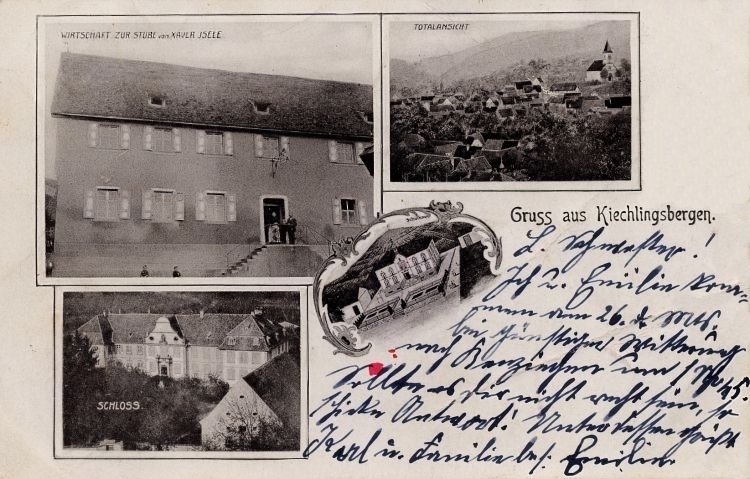 WIRTSCHAFT ZUR STUBE von XAVER ISELE.
TOTALANSICHT
SCHLOSS.
Gruss aus Kiechlingsbergen.
L. Schwester!
Ich u. Emilie kom-
men am 26. d. Mts.
bei günstiger Witterung
nach Kenzingen um 1 Uhr 45.
Sollte es dir nicht recht sein, so
schicke Antwort! Unterdessen grüßt
Karl u. Familie bes. Emilie.